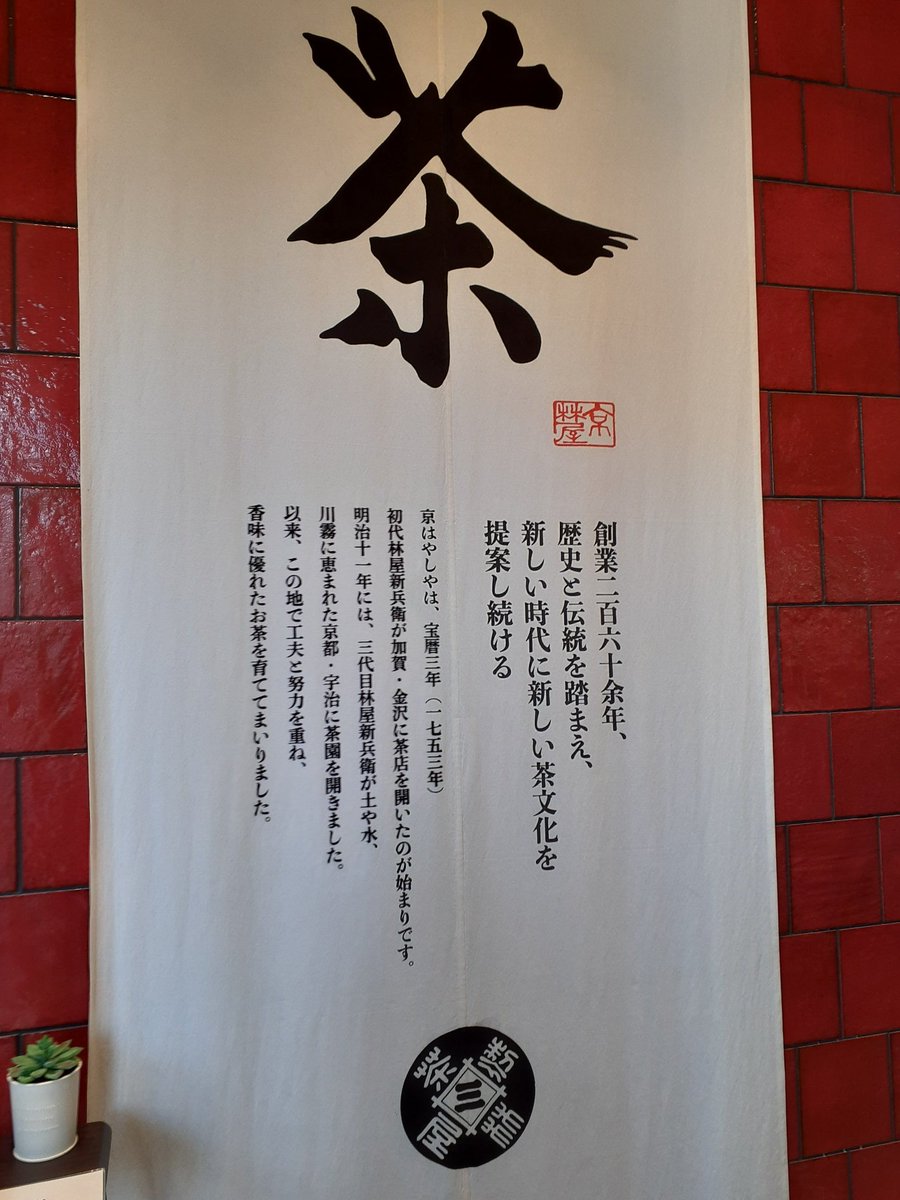 茶
京
林屋
創業二百六十余年、
歴史と伝統を踏まえ、
新しい時代に新しい茶文化を
提案し続ける
京はやしやは、宝暦三年（一七五三年）
初代林屋新兵衛が加賀・金沢に茶店を開いたのが始まりです。
明治十一年には、三代目林屋新兵衛が土や水、
川霧に恵まれた京都・宇治に茶園を開きました。
以来、この地で工夫と努力を重ね、
香味に優れたお茶を育ててまいりました。
三
茶
林